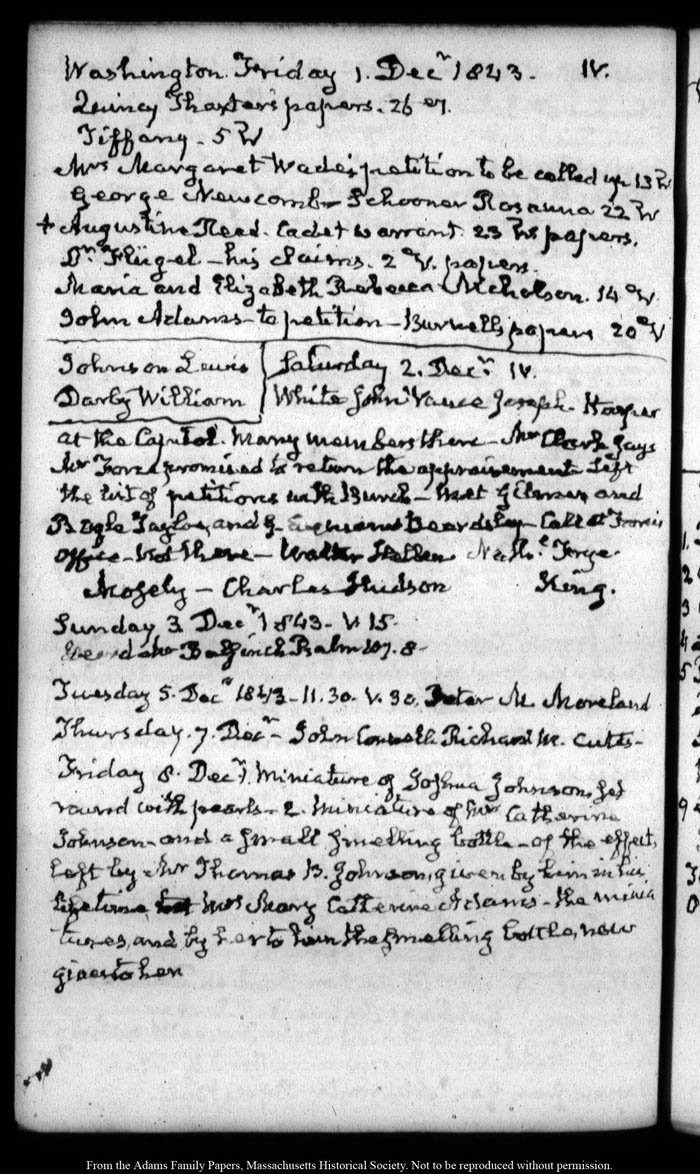 Washington. Friday 1. Decr. 1843. IV.
Quincy Thaxter's papers. 26
Tiffany. 5 W
Mrs Margaret Wade's petition to be called up 13 W
George Newcomb Schooner Rosanna 22 W
+ Augustine Read. Cadet warrant 23 W papers.
Dr. Flügel his claims. 2 papers.
Maria and Elizabeth Rebecca Nicholson. 14
John Adams to petition Burnell's papers 20
Johnson Lewis
Darby William
Saturday 2. Decr. IV.
White John Vance Joseph. Harper
at the Capitol. Many members there Mr Clark says
Mr Force promised to return the appraisement. Left
the list of petitions with Burch met Gilmer and
Taylor and Beardsley Call at Force's
Office not there Walter
Mosely Charles Hudson King.
Sunday 3 Decr. 1843. V. 15.
Heard Mr Bulfinch Psalm 107. 8.
Tuesday 5. Decr. 1843. 11.30. V. 30. M. Moreland
Thursday. 7. Decr. John Richard M. Cutts
Friday 8. Decr. Miniature of Joshua Johnson, set
round with pearls 2. Miniature of Mrs Catherine
Johnson and a small smelling bottle of the effects
left by Mr Thomas B. Johnson, given by him in his
lifetime Mrs Mary Catherine Adams the minia
tures, and by her to him the smelling bottle, now
given to her
From the Adams Family Papers, Massachusetts Historical Society. Not to be reproduced without permission.